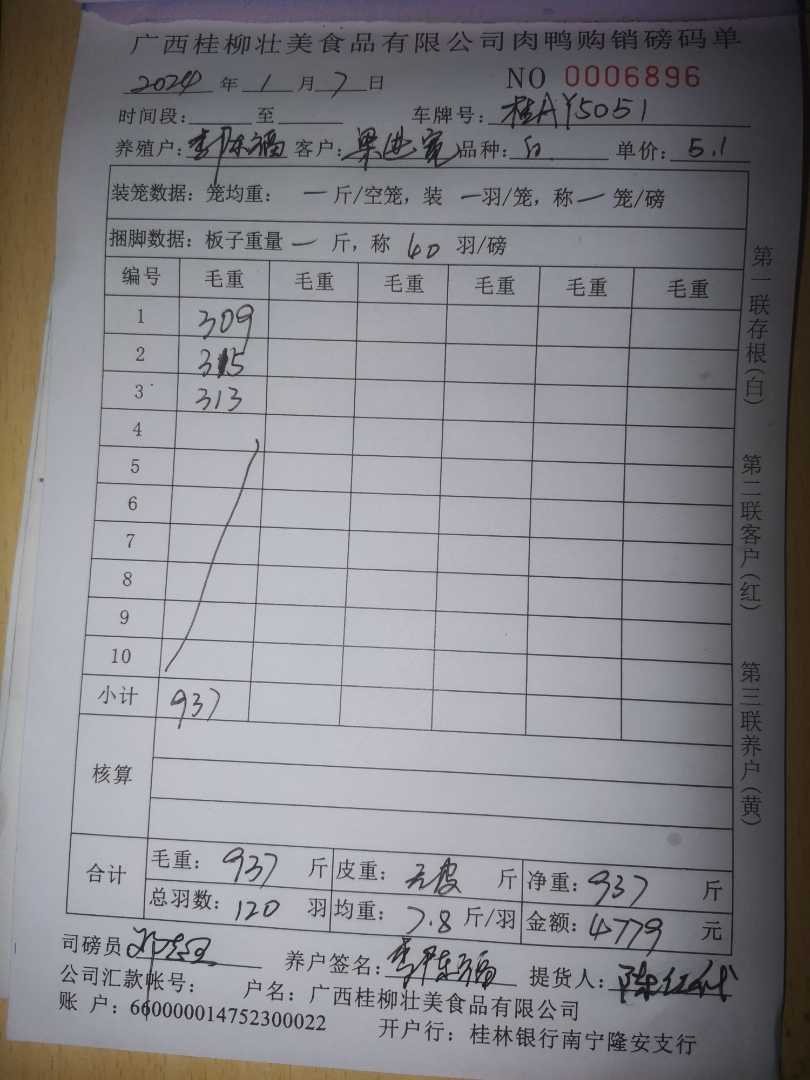 广西桂柳壮美食品有限公司肉鸭购销磅码单
2024 年 1 月 7 日 NO 0006896
时间段: 至 车牌号: 桂AY5051
养殖户: 李陈福 客户: 梁 宽 品种: 白 单价: 5.1
装笼数据: 笼均重: 一 斤/空笼, 装 一 羽/笼, 称 一 笼/磅
捆脚数据: 板子重量 一 斤, 称 40 羽/磅
编号 毛重 毛重 毛重 毛重 毛重 毛重
1 309
2 315
3 313
4
5
6
7
8
9
10
小计 937
核算
合计 毛重: 937 斤 皮重: 无皮 斤 净重: 937 斤
总羽数: 120 羽 均重: 7.8 斤/羽 金额: 4779 元
司磅员 养户签名: 李陈福 提货人: 陈
公司汇款帐号: 户名: 广西桂柳壮美食品有限公司
账 户: 660000014752300022 开户行: 桂林银行南宁隆安支行
第一联存根(白) 第二联客户(红) 第三联养户(黄)